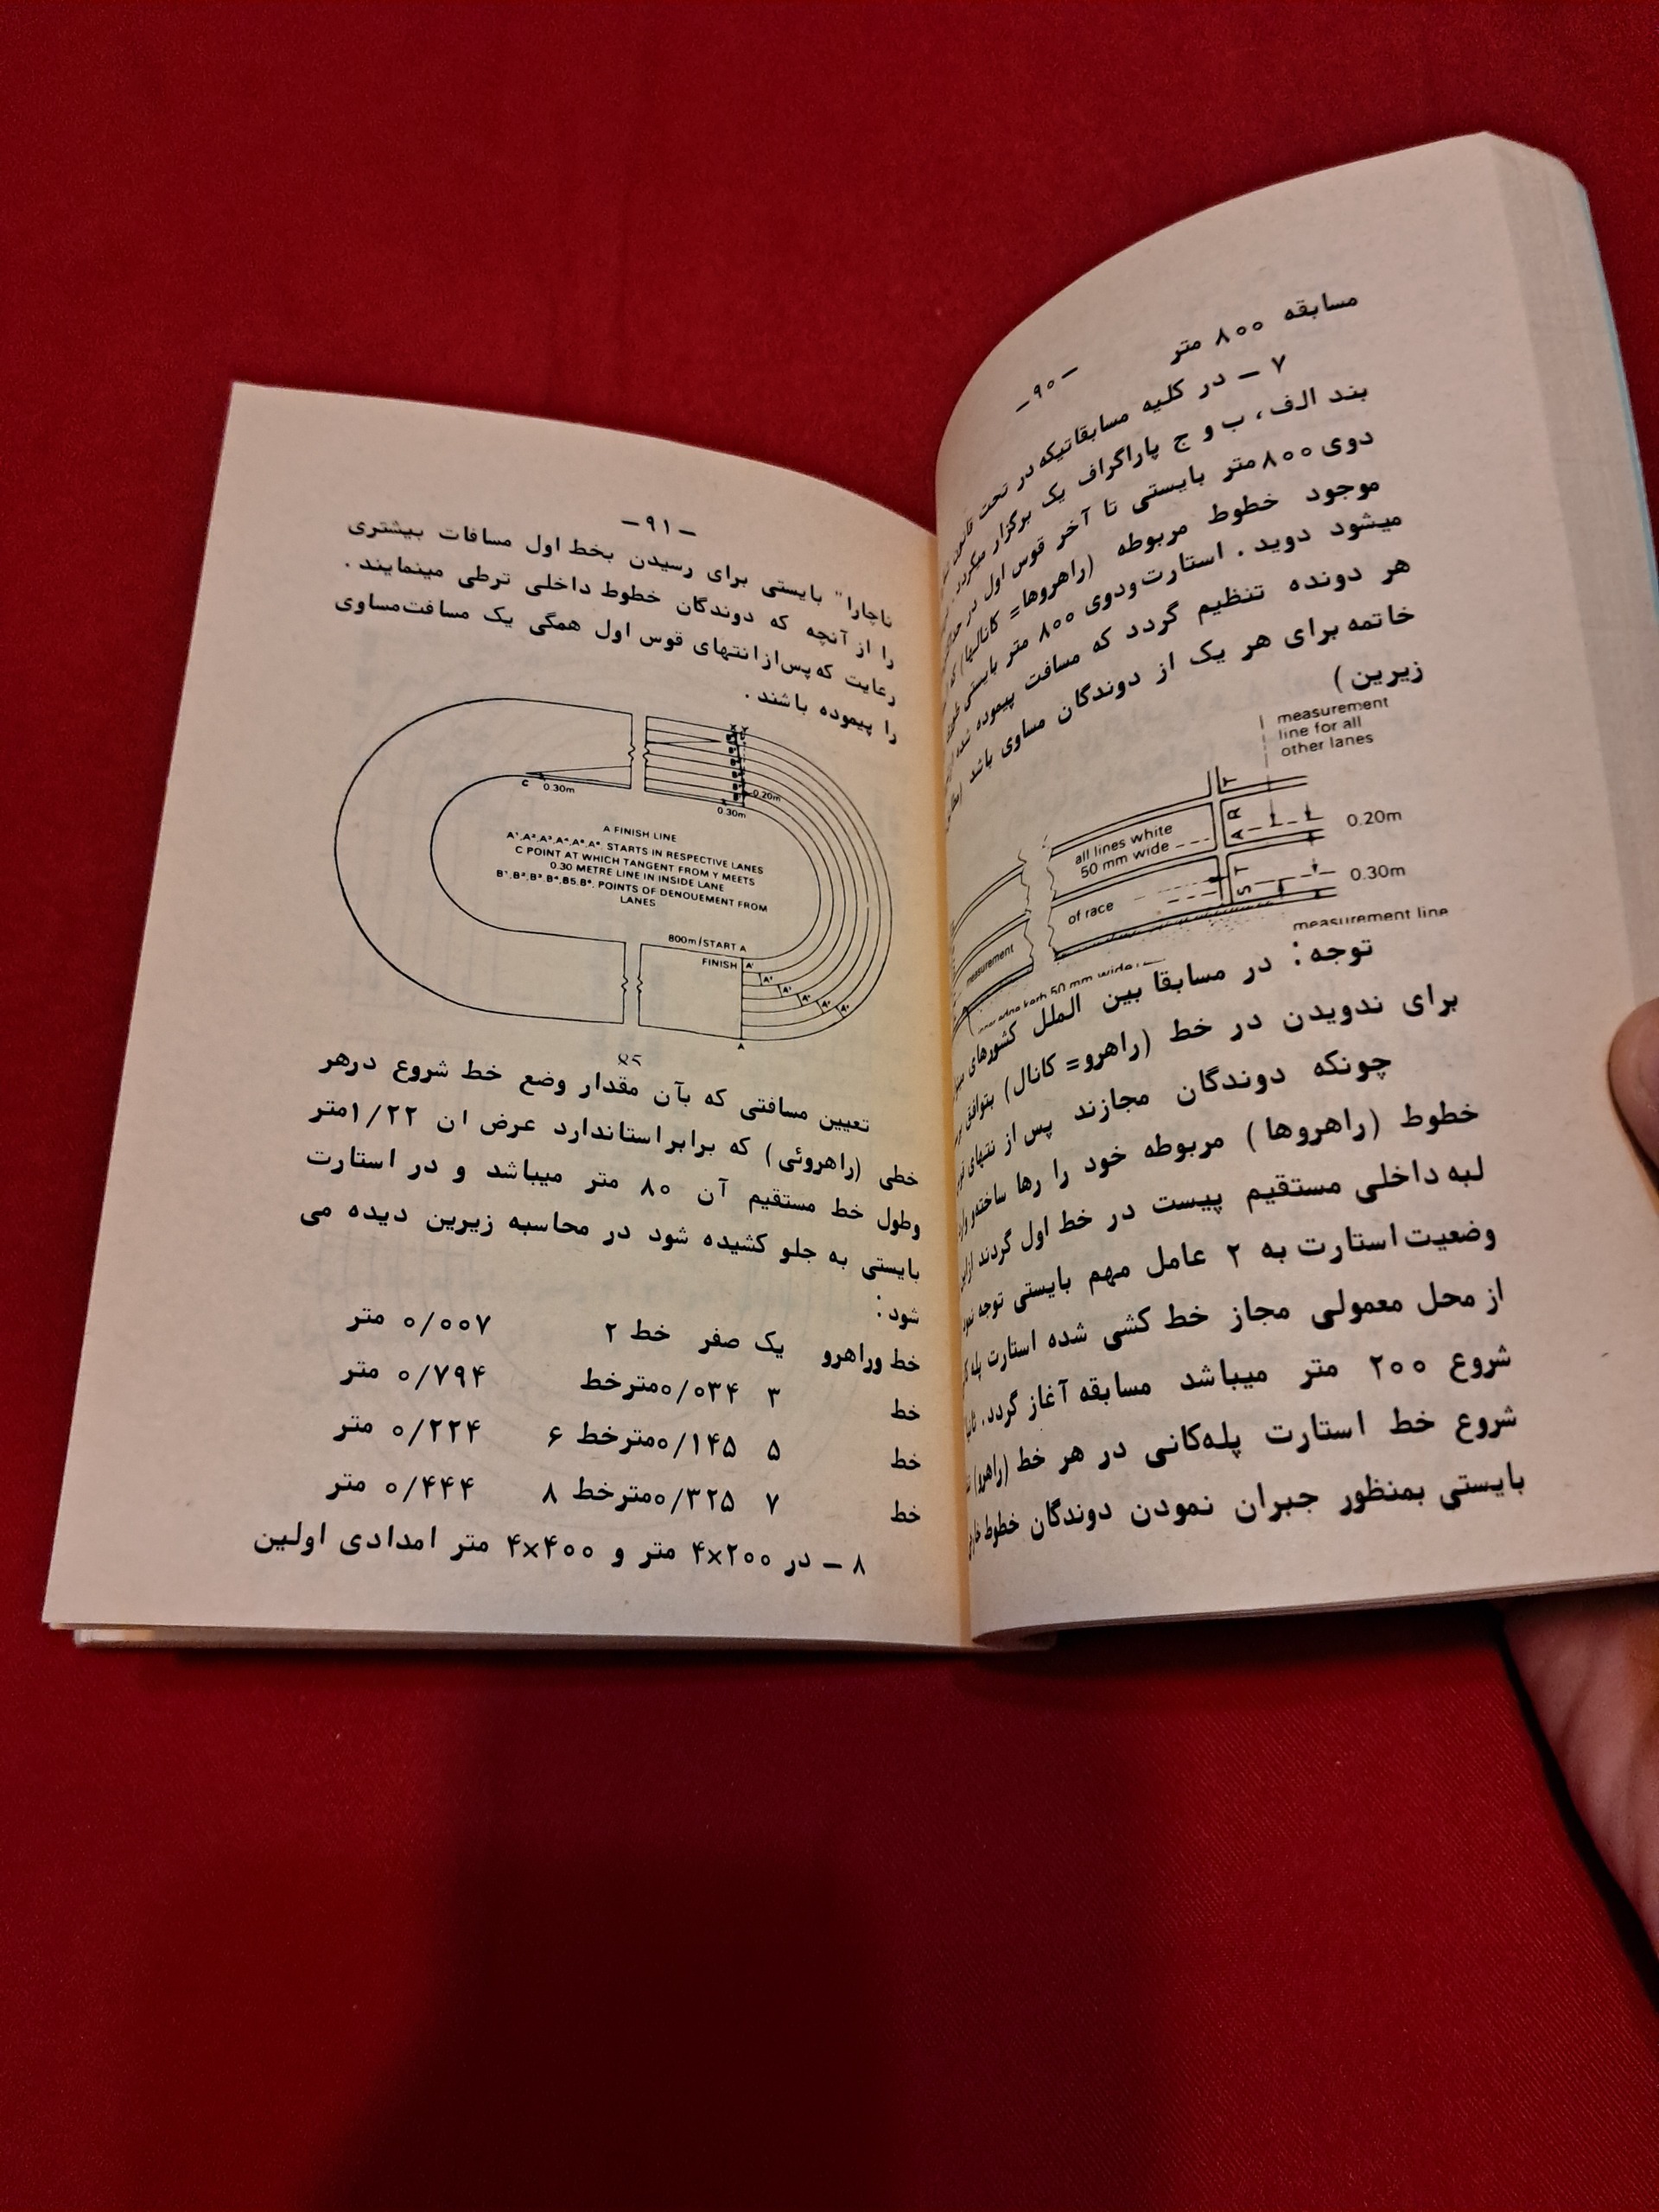 -۹۰-
مسابقه ۸۰۰ متر
۷ - در کلیه مسابقاتیکه در تحت
بند الف، ب و ج پاراگراف یک برگزار میگردد
دوی ۸۰۰متر بایستی تا آخر قوس اول در
موجود خطوط مربوطه (راهروها= کانالها)
میشود دوید. استارت‌ودوی ۸۰۰ متر بایستی
هر دونده تنظیم گردد که مسافت پیموده شده
خاتمه برای هر یک از دوندگان مساوی باشد
زیرین)
measurement
line for all
other lanes
all lines white
50 mm wide
START
0.20m
of race
0.30m
measurement
measurement line
50 mm wide
توجه: در مسابقا بین الملل کشورهای
برای ندویدن در خط (راهرو= کانال) بتوافق
چونکه دوندگان مجازند پس از
خطوط (راهروها) مربوطه خود را رها ساخته
لبه داخلی مستقیم پیست در خط اول گردند
وضعیت استارت به ۲ عامل مهم بایستی توجه
از محل معمولی مجاز خط کشی شده استارت
شروع ۲۰۰ متر میباشد مسابقه آغاز گردد.
شروع خط استارت پله‌کانی در هر خط (راهرو)
بایستی بمنظور جبران نمودن دوندگان خطوط
-۹۱-
ناچارا" بایستی برای رسیدن بخط اول مسافات بیشتری
را از آنچه که دوندگان خطوط داخلی ترطی مینمایند.
رعایت که پس‌از انتهای قوس اول همگی یک مسافت‌مساوی
را پیموده باشند.
C 0.30m
0.20m
0.30m
A FINISH LINE
STARTS IN RESPECTIVE LANES
C POINT AT WHICH TANGENT FROM Y MEETS
0.30 METRE LINE IN INSIDE LANE
POINTS OF DENOUEMENT FROM
LANES
800m/START A
FINISH
A
تعیین مسافتی که بآن مقدار وضع خط شروع درهر
خطی (راهروئی) که برابر استاندارد عرض ان ۱/۲۲متر
وطول خط مستقیم آن ۸۰ متر میباشد و در استارت
بایستی به جلو کشیده شود در محاسبه زیرین دیده می
شود:
خط وراهرو یک صفر خط ۲ ۰/۰۰۷ متر
خط ۳ ۰/۰۳۴مترخط ۰/۷۹۴ متر
خط ۵ ۰/۱۴۵مترخط ۶ ۰/۲۲۴ متر
خط ۷ ۰/۳۲۵مترخط ۸ ۰/۴۴۴ متر
۸ - در ۴×۲۰۰ متر و ۴×۴۰۰ متر امدادی اولین